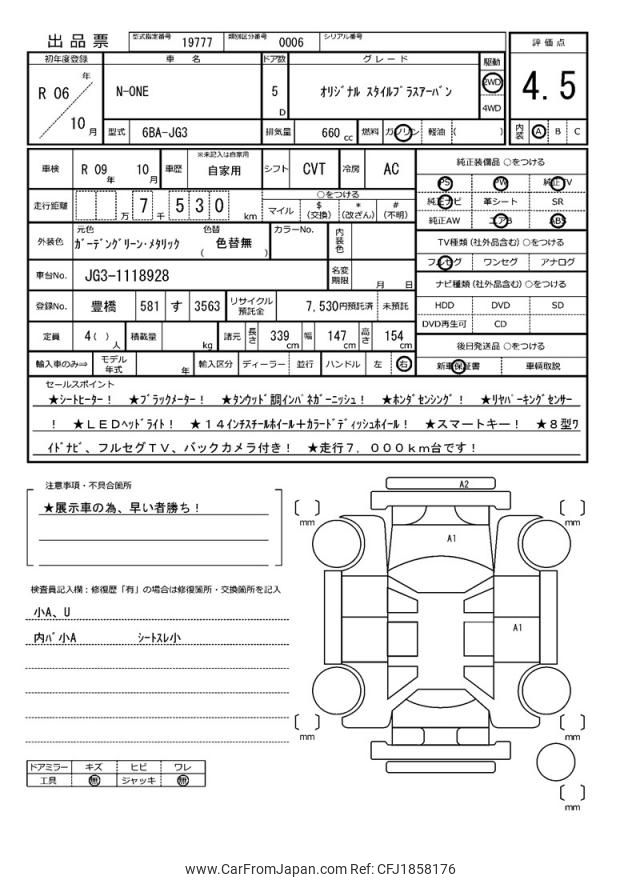 出品票 型式指定番号 19777 類別区分番号 0006 シリアル番号
評価点
4.5
内装 A B C
初年度登録 車名 ドア数 グレード 駆動
R 06 年 10 月
N-ONE 5 D オリジナル スタイルプラスアーバン 2WD 4WD
型式 6BA-JG3 排気量 660 cc 燃料 ガソリン 軽油 ( )
車検 R 09 年 10 月 車歴 ※未記入は自家用 自家用 シフト CVT 冷房 AC
走行距離 万 7 千 5 3 0 km
○をつける
マイル $ (交換) * (改ざん) # (不明)
外装色 元色 ガーデングリーン・メタリック 色替 ( 色替無 ) カラーNo. 内装色
車台No. JG3-1118928 名変期限 月 日
登録No. 豊橋 581 す 3563 リサイクル預託金 7,530円預託済 未預託
定員 4 ( ) 人 積載量 kg 諸元 長さ 339 cm 幅 147 cm 高さ 154 cm
輸入車のみ⇒ モデル年式 年 輸入区分 ディーラー 並行 ハンドル 左 右
純正装備品 ○をつける
PS PW 純正TV
純正ナビ 革シート SR
純正AW エアB ABS
TV種類 (社外品含む) ○をつける
フルセグ ワンセグ アナログ
ナビ種類 (社外品含む) ○をつける
HDD DVD SD
DVD再生可 CD
後日発送品 ○をつける
新車保証書 車輌取説
セールスポイント
★シートヒーター! ★ブラックメーター! ★タンウッド調インパネガーニッシュ! ★ホンダセンシング! ★リヤパーキングセンサー
! ★LEDヘッドライト! ★14インチスチールホイール+カラードディッシュホイール! ★スマートキー! ★8型ワ
イドナビ、フルセグTV、バックカメラ付き! ★走行7,000km台です!
注意事項・不具合箇所
★展示車の為、早い者勝ち!
検査員記入欄:修復歴「有」の場合は修復箇所・交換箇所を記入
小A、U
内バ小A シートスレ小
ドアミラー キズ ヒビ ワレ
工具 無 ジャッキ 無
A2
A1
A1
mm
mm
mm
mm
mm
www.CarFromJapan.com Ref: CFJ1858176